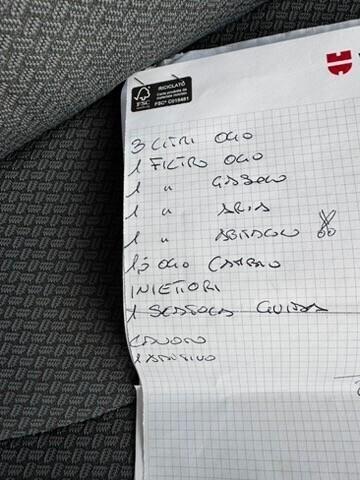 RICICLATO
Carta prodotta da materiale riciclato
FSC® C019461
FSC
3 LITRI OLIO
1 FILTRO OLIO
1 " GASOLIO
1 " ARIA
1 " ABITACOLO
OLIO CAMBIO
INIETTORI
1 SCATOLA GUIDA
1 ADDITIVO